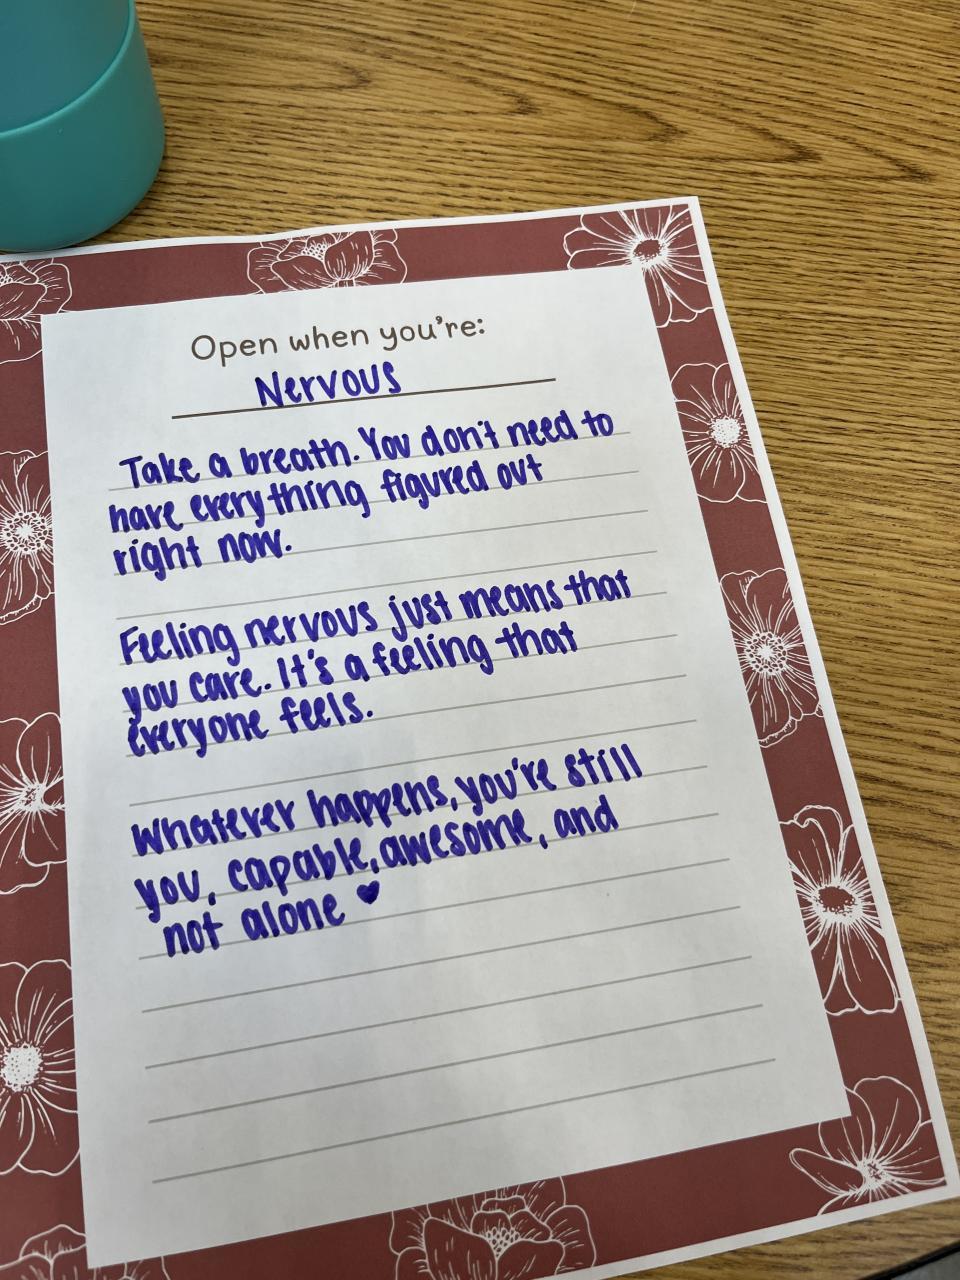 Open when you're:
Nervous
Take a breath. You don't need to
have everything figured out
right now.
Feeling nervous just means that
you care. It's a feeling that
everyone feels.
Whatever happens, you're still
you, capable, awesome, and
not alone ♥